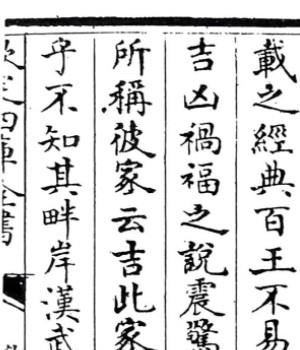 載之經典百王不易
吉凶禍福之說震驚
所稱彼家云吉此家
乎不知其畔岸漢武
欽定四庫全書